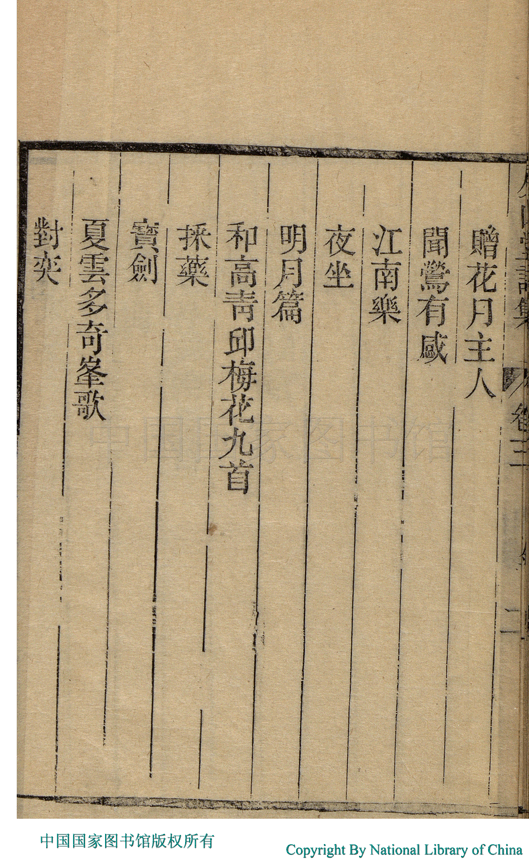 詩集
卷三
二
贈花月主人
聞鶯有感
江南樂
夜坐
明月篇
和高青邱梅花九首
採藥
寶劍
夏雲多奇峯歌
對奕
中国国家图书馆
中国国家图书馆版权所有
Copyright By National Library of China